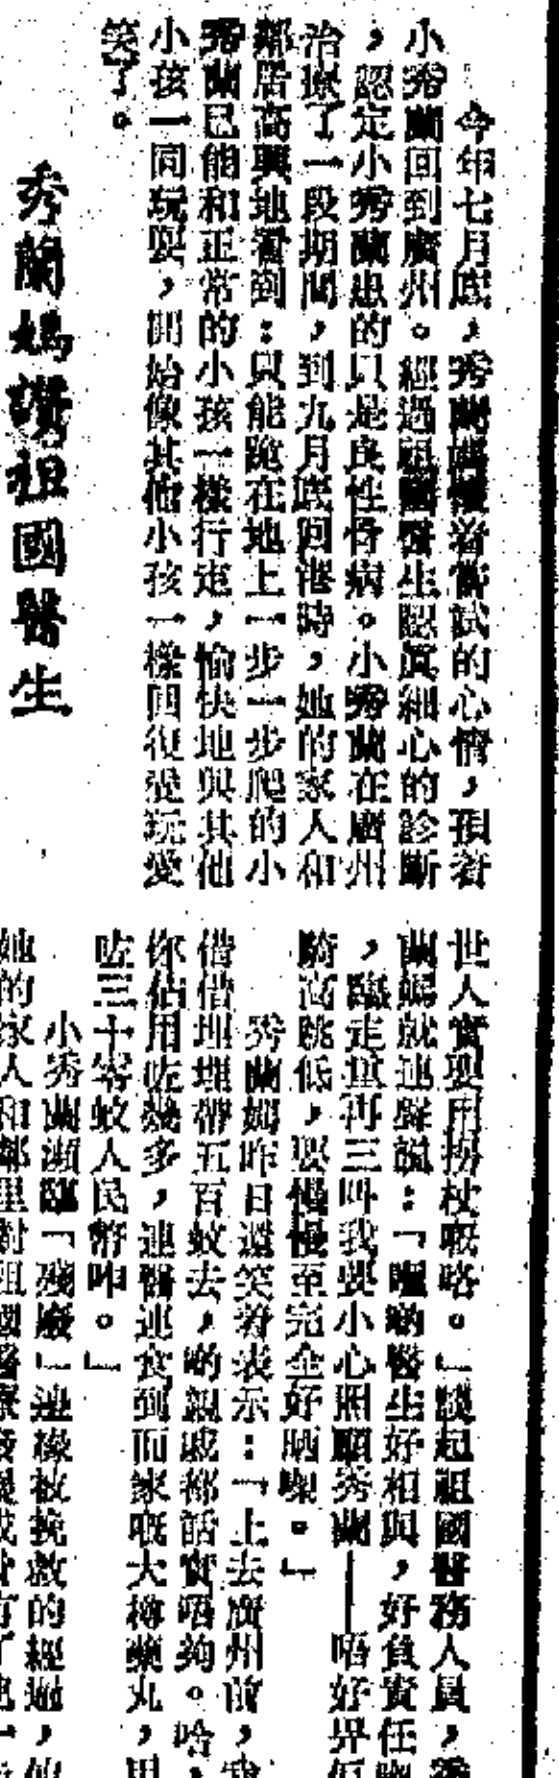 今年七月底，秀蘭媽懷着嘗試的心情，孭着
小秀蘭回到廣州。經過祖國醫生認眞細心的診斷
，認定小秀蘭患的只是良性骨病。小秀蘭在廣州
治療了一段期間，到九月底回港時，她的家人和
鄰居高興地看到：只能跪在地上一步一步爬的小
秀蘭已能和正常的小孩一樣行走，愉快地與其他
小孩一同玩耍，開始像其他小孩一樣回復愛玩愛
笑了。
秀蘭媽讚祖國醫生
世人實要用拐杖嘅咯。」談起祖國醫務人員，秀
蘭媽就連聲說：「嗰啲醫生好相與，好負責任
，臨走重再三叫我要小心照顧秀蘭——唔好畀佢
騎高跳低，要慢慢至完全好晒㗎。」
秀蘭媽昨日還笑着表示：「上去廣州前，我
借借埋埋帶五百蚊去，啲親戚都話實唔夠。哈，
你估用咗幾多，連醫連食到而家嘅大樽藥丸，
咗三十零蚊人民幣咋。」
小秀蘭瀕臨「殘廢」邊緣被挽救的經過，
她的家人和鄰里對祖國醫療